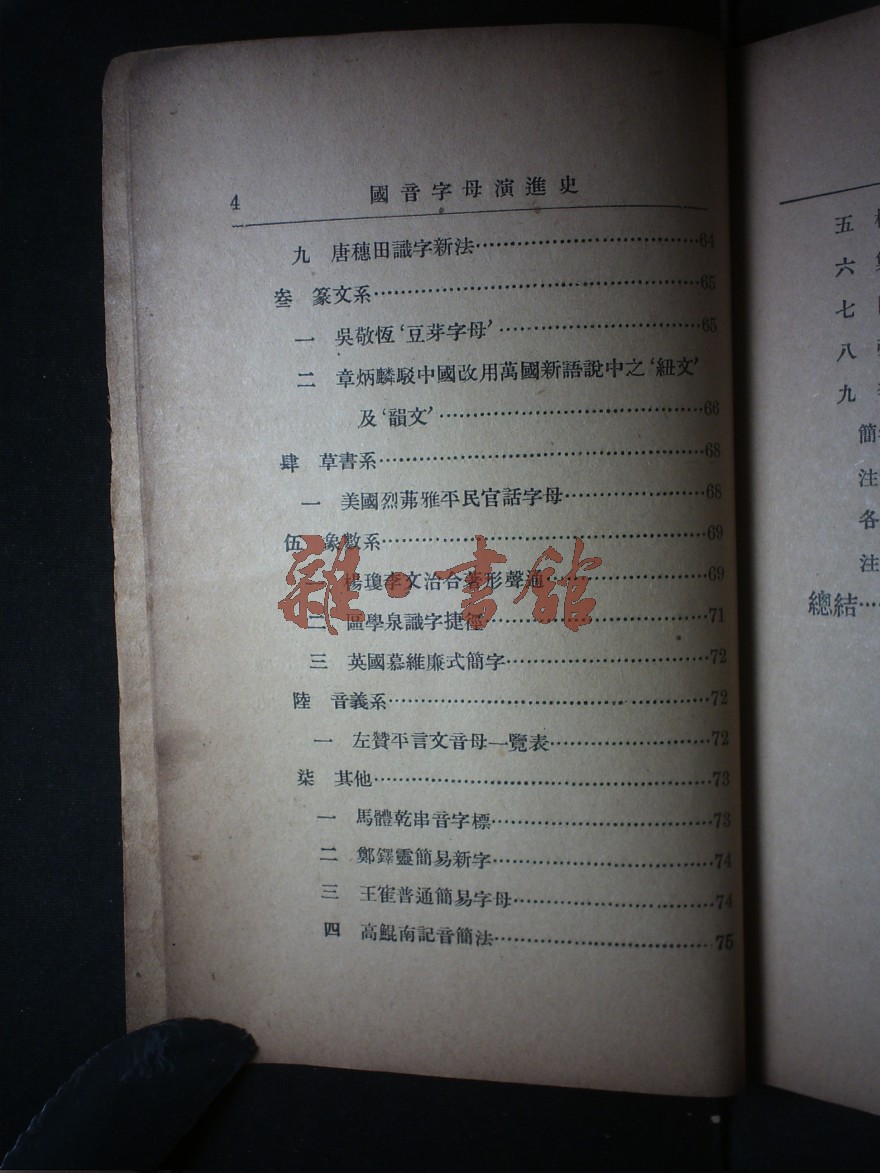 4 國音字母演進史
九 唐穗田識字新法……64
叁 篆文系……65
一 吳敬恆‘豆芽字母’……65
二 章炳麟駁中國改用萬國新語說中之‘紐文’
及‘韻文’……66
肆 草書系……68
一 美國烈茀雅平民官話字母……68
伍 象數系……69
一 楊瓊李文治合著形聲通……69
二 區學泉識字捷徑……71
三 英國慕維廉式簡字……72
陸 音義系……72
一 左贊平言文音母一覽表……72
柒 其他……73
一 馬體乾串音字標……73
二 鄭鐸靈簡易新字……74
三 王崔普通簡易字母……74
四 高鯤南記音簡法……75
雜·書館
五
六
七
八
九
簡
注
各
注
總結……